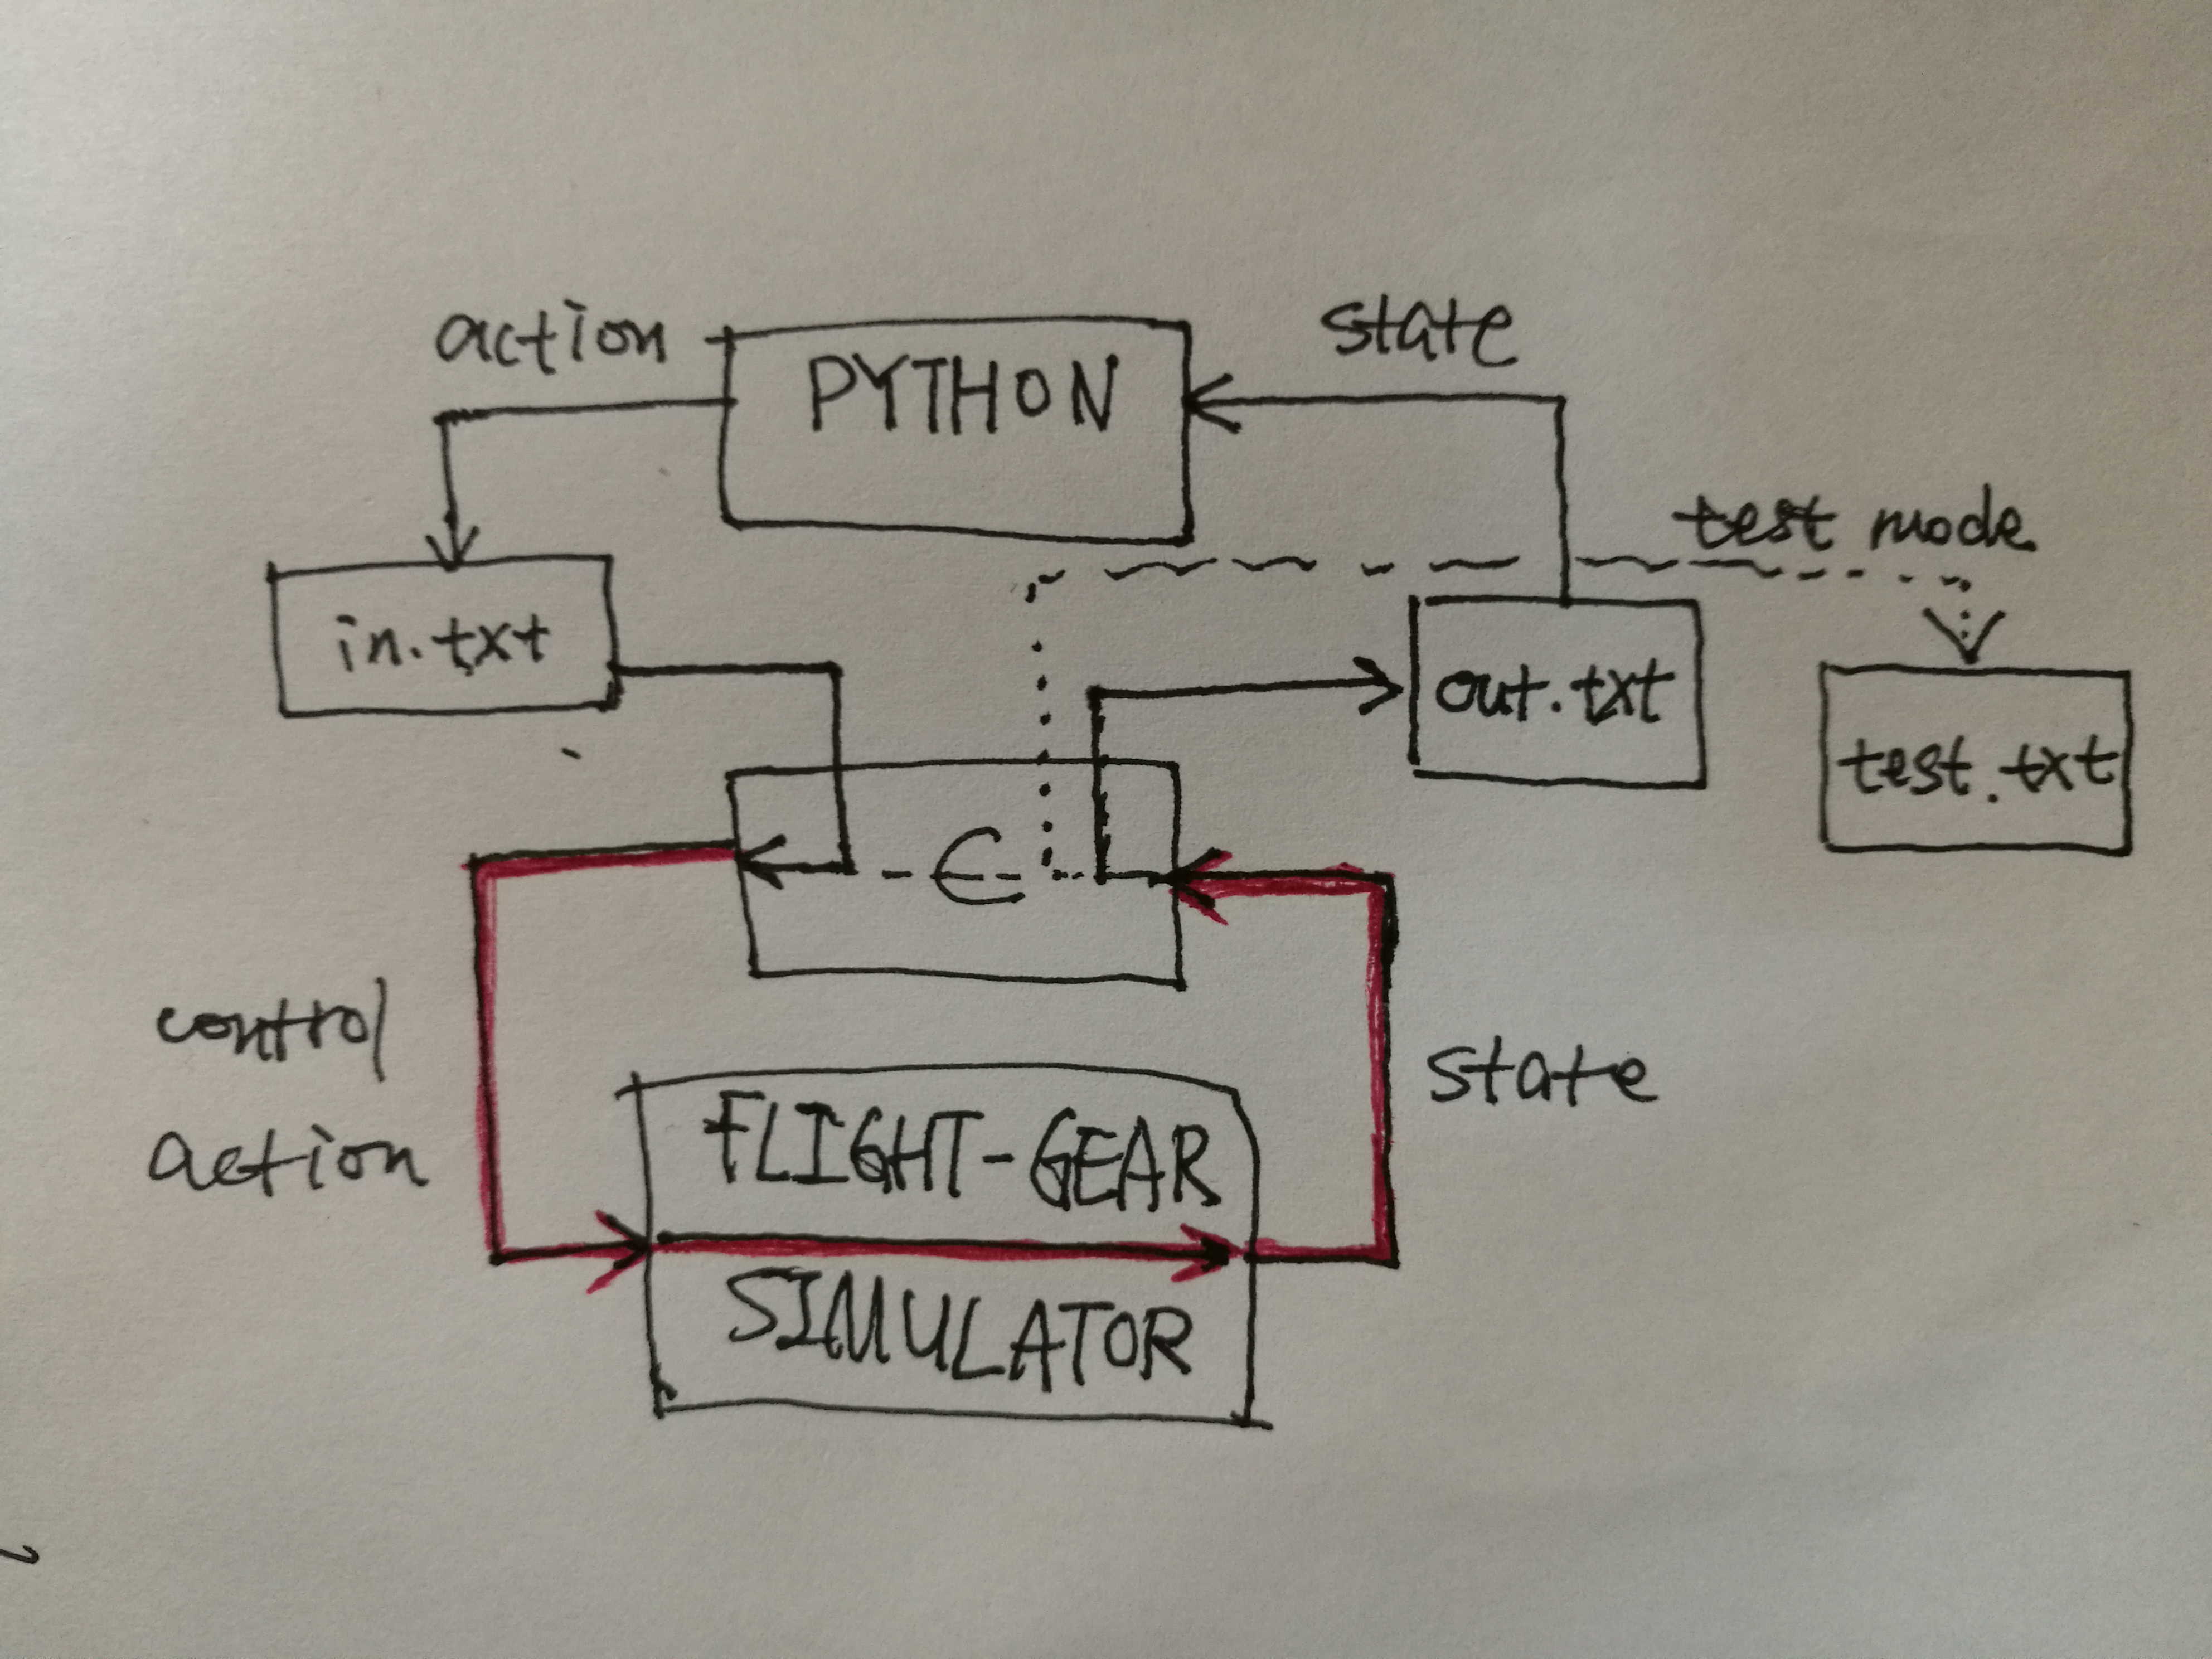 action
PYTHON
state
test mode
in.txt
out.txt
test.txt
C
control
action
state
FLIGHT-GEAR
SIMULATOR